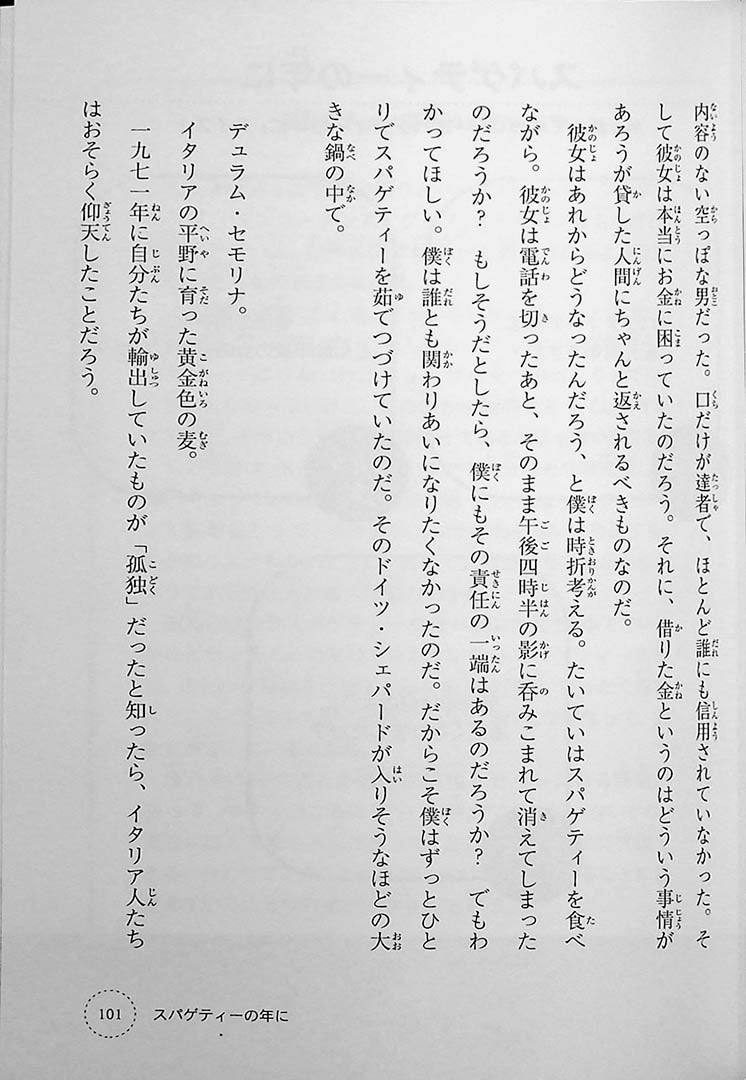 内容のない空っぽな男だった。口だけが達者で、ほとんど誰にも信用されていなかった。そ
して彼女は本当にお金に困っていたのだろう。それに、借りた金というのはどういう事情が
あろうが貸した人間にちゃんと返されるべきものなのだ。
彼女はあれからどうなったんだろう、と僕は時折考える。たいていはスパゲティーを食べ
ながら。彼女は電話を切ったあと、そのまま午後四時半の影に呑みこまれて消えてしまった
のだろうか？　もしそうだとしたら、僕にもその責任の一端はあるのだろうか？　でもわ
かってほしい。僕は誰とも関わりあいになりたくなかったのだ。だからこそ僕はずっとひと
りでスパゲティーを茹でつづけていたのだ。そのドイツ・シェパードが入りそうなほどの大
きな鍋の中で。
デュラム・セモリナ。
イタリアの平野に育った黄金色の麦。
一九七一年に自分たちが輸出していたものが「孤独」だったと知ったら、イタリア人たち
はおそらく仰天したことだろう。
101 スパゲティーの年に